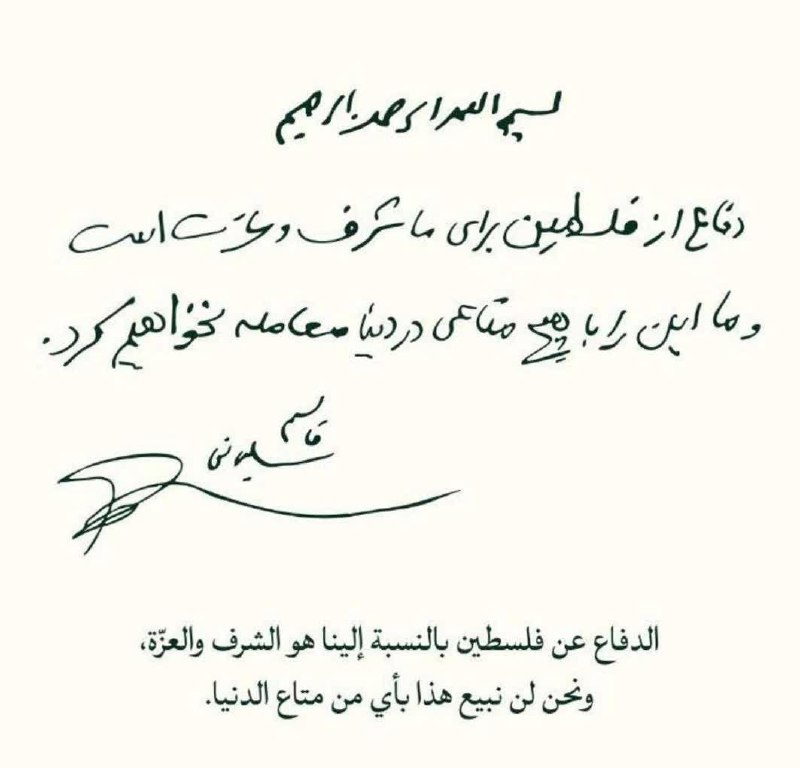 بسم الله الرحمن الرحیم
دفاع از فلسطین برای ما شرف و عزّت است
و ما این را با هیچ متاعی در دنیا معامله نخواهیم کرد.
قاسم
سلیمانی
الدفاع عن فلسطين بالنسبة إلينا هو الشرف والعزّة،
ونحن لن نبيع هذا بأي من متاع الدنيا.